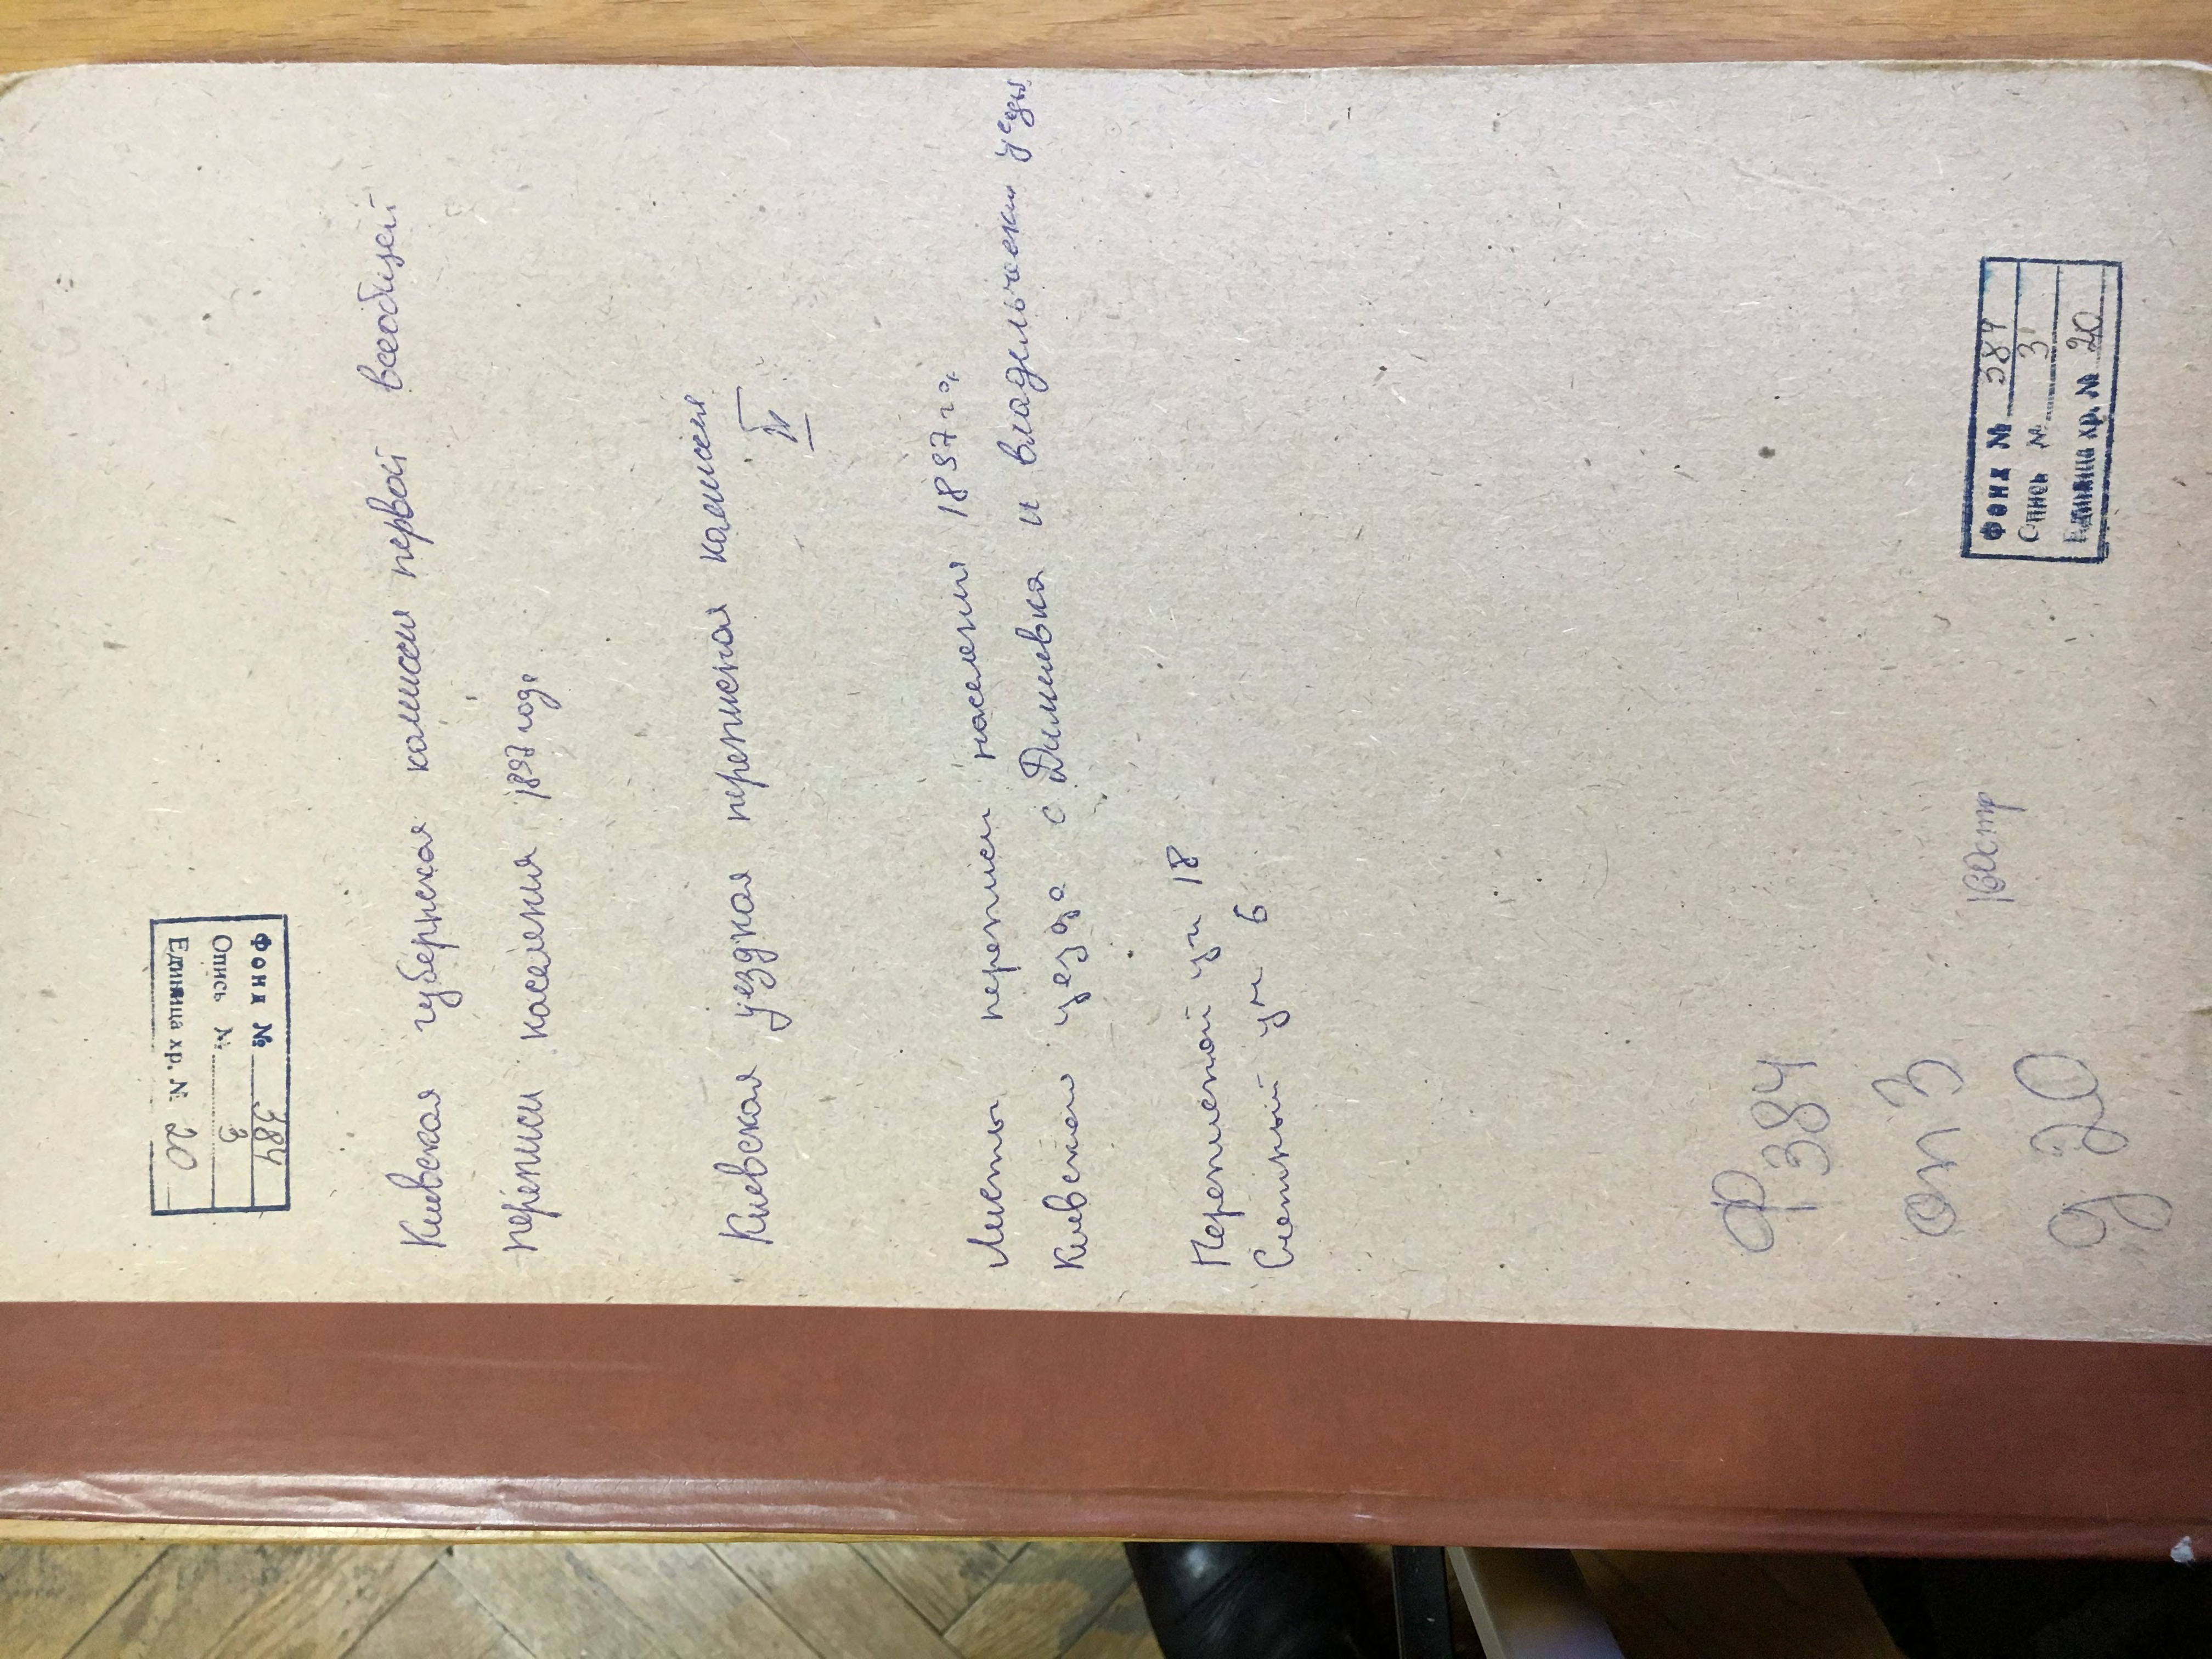 Фонд № 384
Опись № 3
Единица хр. № 20
Киевская губернская комиссия первой всеобщей
переписи населения 1897 года
Киевская уездная переписная комиссия
IV
Листы переписи населения 1897 г.
Киевского уезда с Димиевка и владельческ
Переписной уч 18
Счетный уч 6
Ф 384
оп 3
д 20
Фонд № 384
Опись № 3
Единица хр. № 20